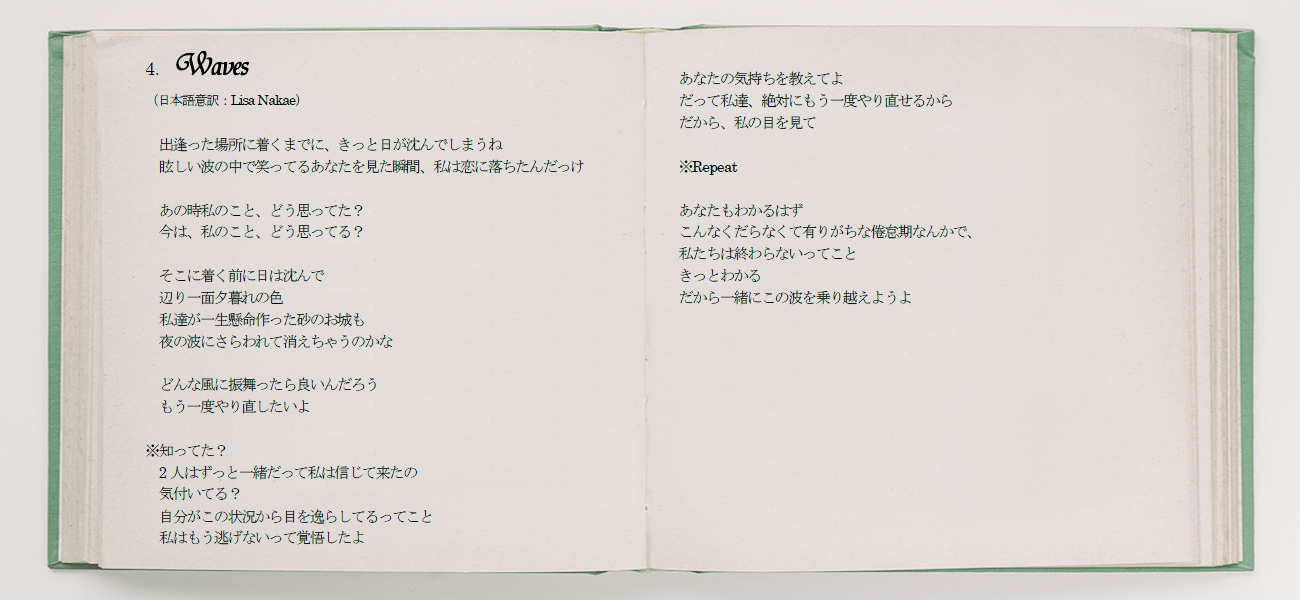 4. Waves
（日本語意訳：Lisa Nakae）
出逢った場所に着くまでに、きっと日が沈んでしまうね
眩しい波の中で笑ってるあなたを見た瞬間、私は恋に落ちたんだっけ
あの時私のこと、どう思ってた？
今は、私のこと、どう思ってる？
そこに着く前に日は沈んで
辺り一面夕暮れの色
私達が一生懸命作った砂のお城も
夜の波にさらわれて消えちゃうのかな
どんな風に振舞ったら良いんだろう
もう一度やり直したいよ
※知ってた？
2 人はずっと一緒だって私は信じて来たの
気付いてる？
自分がこの状況から目を逸らしてるってこと
私はもう逃げないって覚悟したよ
あなたの気持ちを教えてよ
だって私達、絶対にもう一度やり直せるから
だから、私の目を見て
※Repeat
あなたもわかるはず
こんなくだらなくて有りがちな倦怠期なんかで、
私たちは終わらないってこと
きっとわかる
だから一緒にこの波を乗り越えようよ